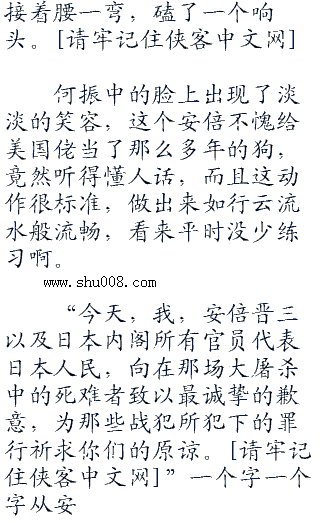 接着腰一弯，磕了一个响
头。[请牢记住侠客中文网]
何振中的脸上出现了淡
淡的笑容，这个安倍不愧给
美国佬当了那么多年的狗，
竟然听得懂人话，而且这动
作很标准，做出来如行云流
水般流畅，看来平时没少练
习啊。
www.shu008.com
“今天，我，安倍晋三
以及日本内阁所有官员代表
日本人民，向在那场大屠杀
中的死难者致以最诚挚的歉
意，为那些战犯所犯下的罪
行祈求你们的原谅。[请牢记
住侠客中文网]”一个字一个
字从安